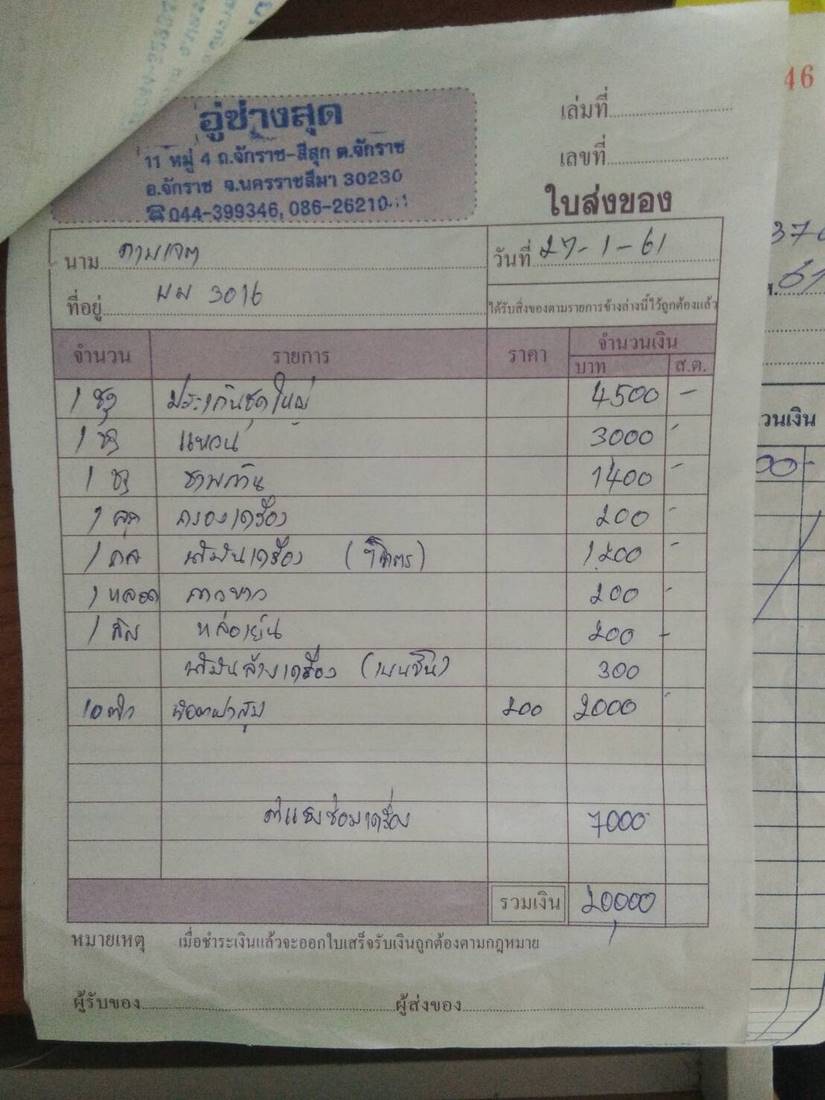 อู่ช่างสุด
11 หมู่ 4 ถ.จักราช-สีสุก ต.จักราช
อ.จักราช จ.นครราชสีมา 30230
☎044-399346, 086-26210
เล่มที่
เลขที่
ใบส่งของ
46
นาม
วันที่ 27-1-61
ที่อยู่ นม 3016
ได้รับสิ่งของตามรายการข้างล่างนี้ไว้ถูกต้องแล้ว
จำนวน รายการ ราคา จำนวนเงิน
บาท ส.ต.
1 ชุด ประเก็นชุดใหญ่ 4500 -
1 ชุด แหวน 3000 -
1 ชุด ชาพก้าน 1400 -
1 ลูก กรองเครื่อง 200 -
1 กล น้ำมันเครื่อง (7ลิตร) 1200 -
1 หลอด กาวยาว 200 -
หล่อเย็น 200 -
น้ำมันล้างเครื่อง (เบนซิน) 300
10 ตัว น๊อตฝาสูบ 200 2000 -
ค่าแรงซ่อมเครื่อง 7000
รวมเงิน 20000
หมายเหตุ เมื่อชำระเงินแล้วจะออกใบเสร็จรับเงินถูกต้องตามกฎหมาย
ผู้รับของ ผู้ส่งของ